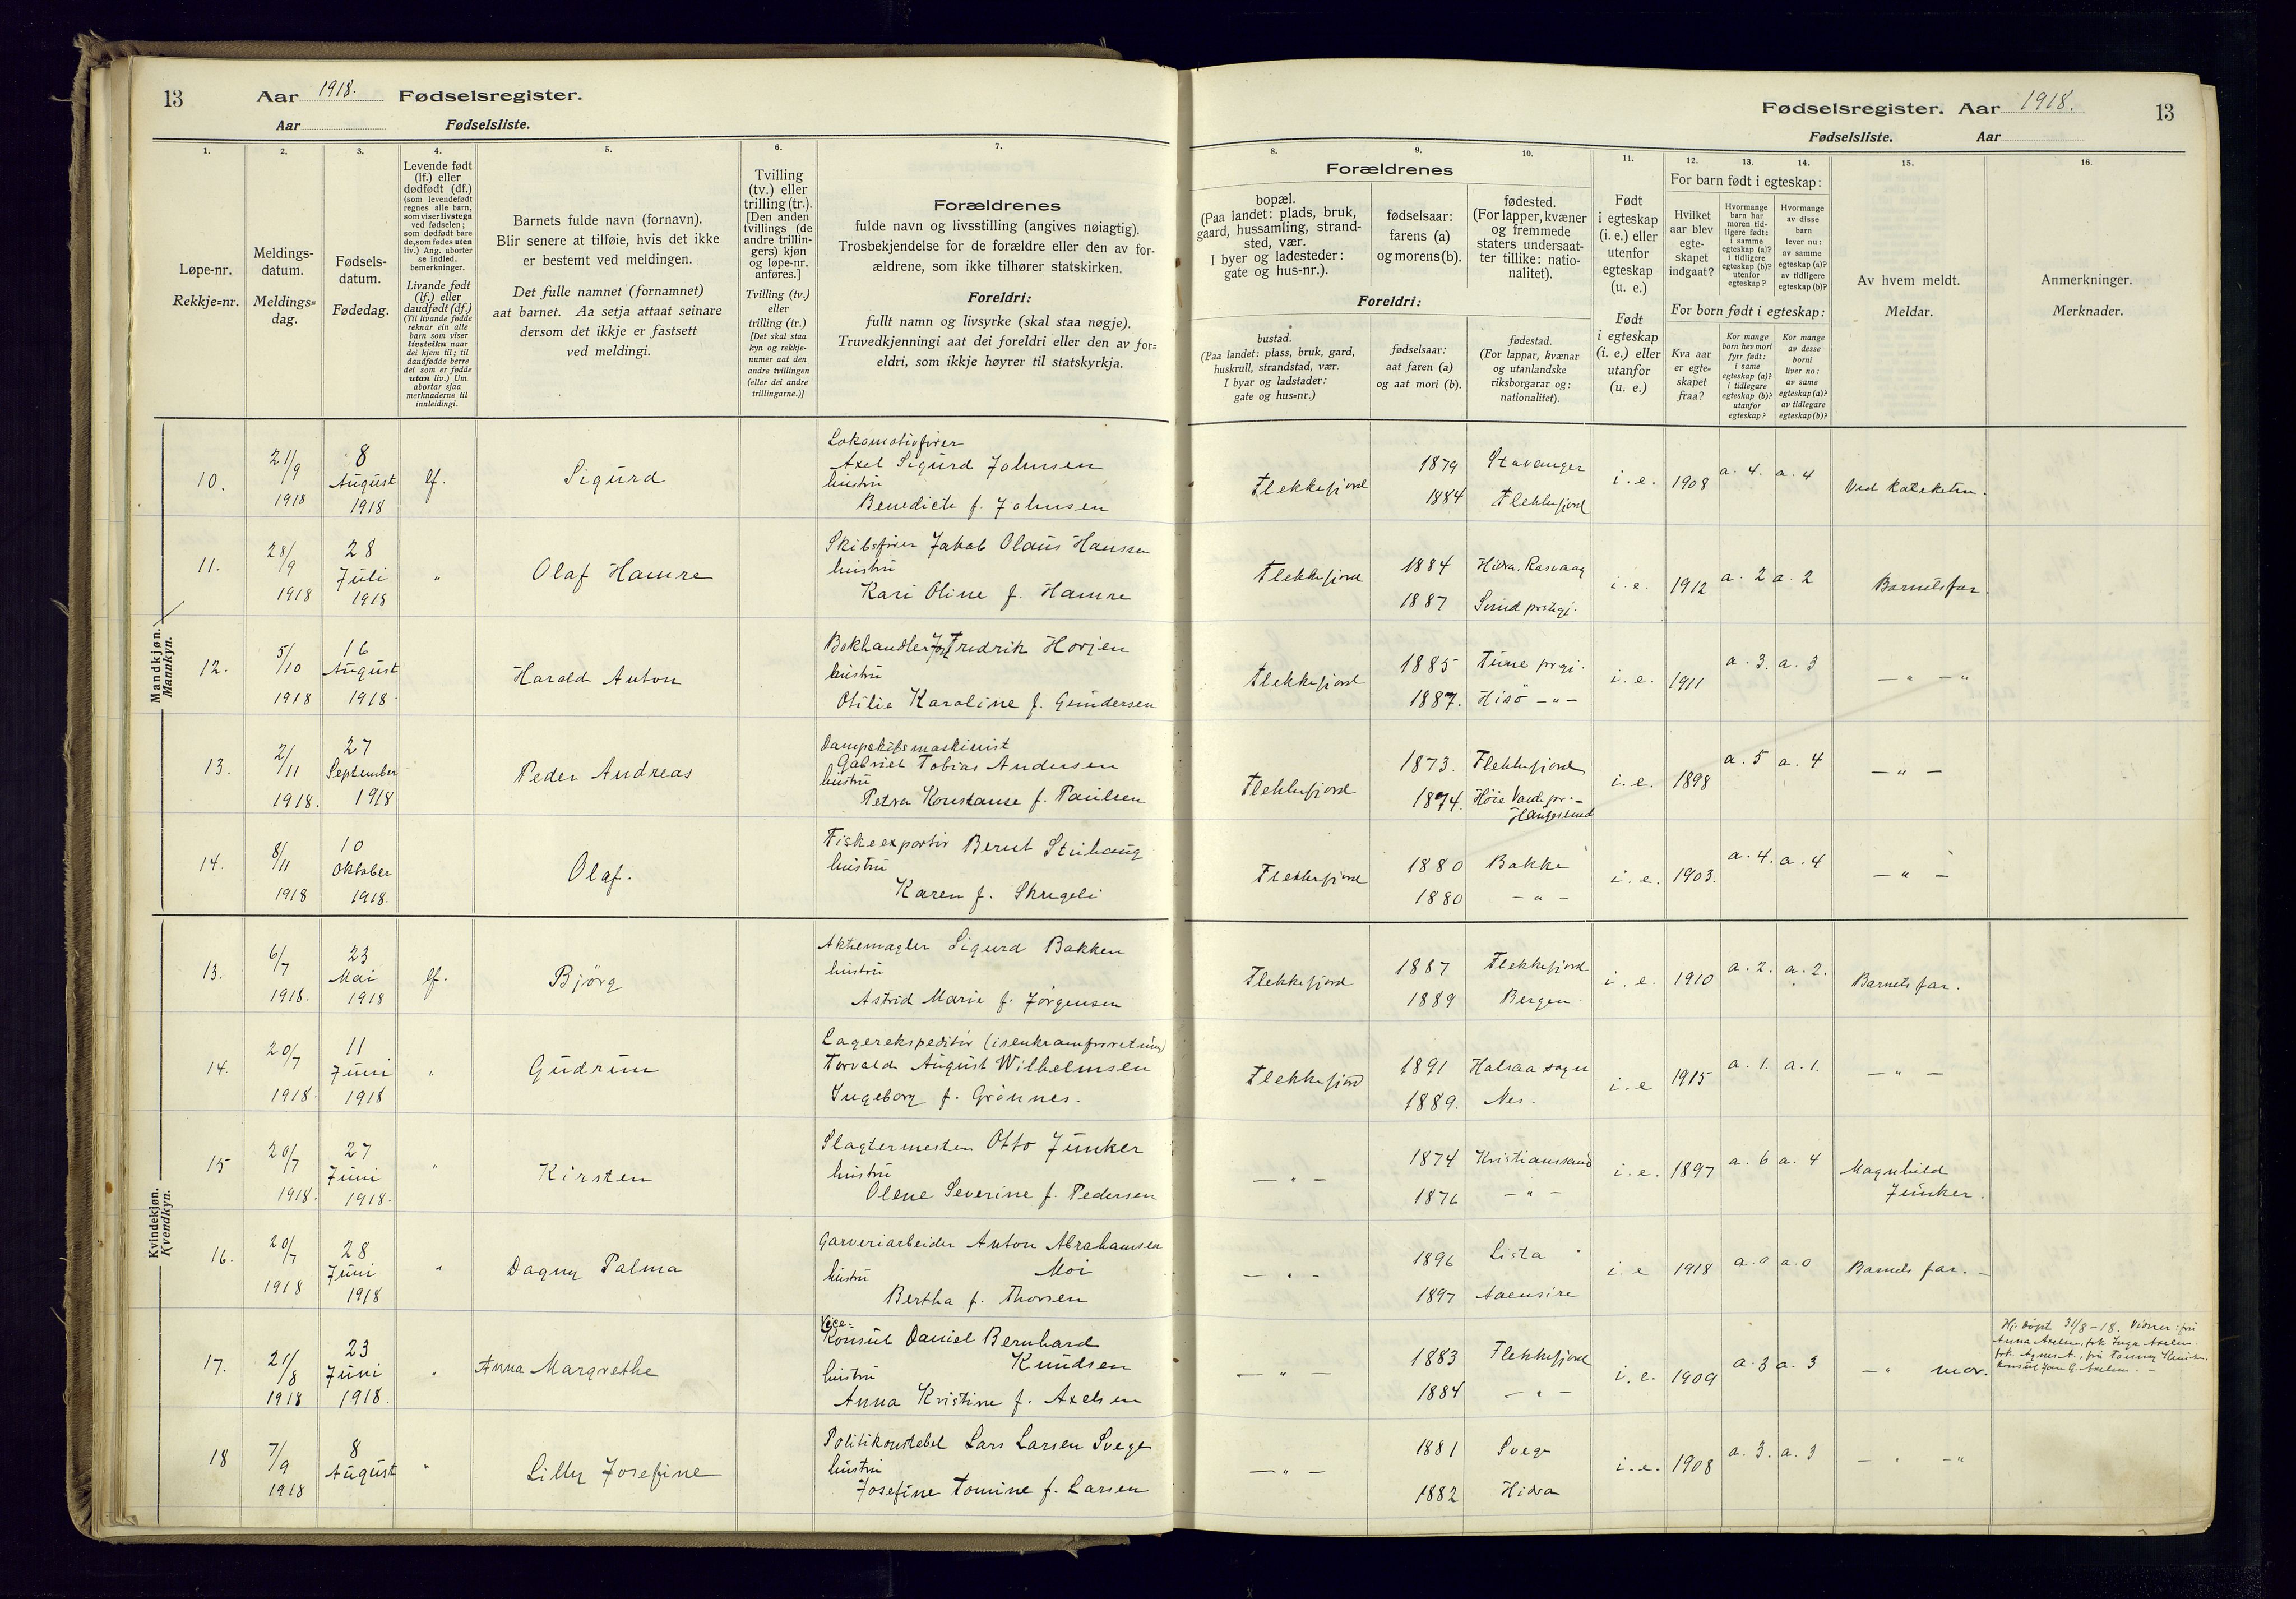 13
Aar 1918. Fødselsregister.
Aar Fødselsliste.
Fødselsregister. Aar 1918.
Fødselsliste. Aar
13
1.
Løpe-nr.
Rekkje=nr.
2.
Meldings-
datum.
Meldings=
dag.
3.
Fødsels-
datum.
Fødedag.
4.
Levende født
(lf.) eller
dødfødt (df.)
(som levendefødt
regnes alle barn,
som viser livstegn
ved fødselen;
som dødfødt bare
de, som fødes uten
liv.) Ang. aborter
se indled.
bemerkninger.
Livande født
(lf.) eller
daudfødt (df.)
(Til livande fødde
reknar ein alle
barn som viser
livsteikn naar
dei kjem til; til
daudfødde berre
dei som er fødde
utan liv.) Um
abortar sjaa
merknaderne til
innleidingi.
5.
Barnets fulde navn (fornavn).
Blir senere at tilføie, hvis det ikke
er bestemt ved meldingen.
Det fulle namnet (fornamnet)
aat barnet. Aa setja attaat seinare
dersom det ikkje er fastsett
ved meldingi.
6.
Tvilling
(tv.) eller
trilling (tr.).
[Den anden
tvillings (de
andre trillin-
gers) kjøn
og løpe-nr.
anføres.]
Tvilling (tv.)
eller
trilling (tr.)
[Det skal staa
kyn og rekkje-
numer aat den
andre tvillingen
(eller dei andre
trillingarne.)]
7.
Forældrenes
fulde navn og livsstilling (angives nøiagtig).
Trosbekjendelse for de forældre eller den av for-
ældrene, som ikke tilhører statskirken.
Foreldri:
fullt namn og livsyrke (skal staa nøgje).
Truvedkjenningi aat dei foreldri eller den av for=
eldri, som ikkje høyrer til statskyrkja.
8.
Forældrenes
bopæl.
(Paa landet: plads, bruk,
gaard, hussamling, strand-
sted, vær.
I byer og ladesteder:
gate og hus-nr.).
Foreldri:
bustad.
(Paa landet: plass, bruk, gard,
huskrull, strandstad, vær.
I byar og ladstader:
gate og hus=nr.)
9.
fødselsaar:
farens (a)
og morens (b).
fødselsaar:
aat faren (a)
og aat mori (b).
10.
fødested.
(For lapper, kvæner
og fremmede
staters undersaat-
ter tillike: natio-
nalitet).
fødestad.
(For lappar, kvænar
og utanlandske
riksborgarar og:
nationalitet).
11.
Født
i egteskap
(i. e.) eller
utenfor
egteskap
(u. e.)
Født
i egteskap
(i. e.) eller
utanfor
(u. e.)
12.
For barn født i egteskap:
Hvilket
aar blev
egte-
skapet
indgaat?
For born født i egteskap:
Kva aar
er egte=
skapet
fraa?
13.
Hvormange
barn har
moren tid-
ligere født:
i samme
egteskap (a)?
i tidligere
egteskap (b)?
utenfor
egteskap?
Kor mange
born hev mori
fyrr født:
i same
egteskap (a)?
i tidlegare
egteskap (b)?
utanfor
egteskap?
14.
Hvormange
av disse
barn
lever nu:
av samme
egteskap (a)?
av tidligere
egteskap (b)?
Kor mange
av desse
borni
liver no:
av same
egteskap (a)?
av tidlegare
egteskap (b)?
15.
Av hvem meldt.
Meldar.
16.
Anmerkninger.
Merknader.
Mandkjøn.
Mannkyn.
10. 21/9 1918 8 August 1918 lf. Sigurd
Lokomotivfører
Axel Sigurd Johnsen
hustru
Benedicte f. Johnsen
Flekkefjord 1879 Stavanger
1884 Flekkefjord
i. e. 1908 a. 4. a. 4 Ved Kateketen.
11. 28/9 1918 28 Juli 1918 " Olaf Hamre
Skibsfører Jakob Olaus Hanssen
hustru
Kari Oline f. Hamre
Flekkefjord 1884 Hidra. Rasvaag
1887 Sund prstgj.
i. e. 1912 a. 2 a. 2 Barnetsfar.
12. 5/10 1918 16 August 1918. Harald Anton
Bokhandler Fredrik Horjen
hustru
Otilie Karoline f. Gundersen
Flekkefjord 1885 Tune prgj.
1887. Hisö — " —
i. e. 1911 a. 3. a. 3 — " — "
13. 2/11 1918. 27 September 1918 Peder Andreas
Dampskibsmaskinist
Gabriel Tobias Andersen
hustru
Petra Konstanse f. Paulsen
Flekkefjord 1873. Flekkefjord
1874. Høie
i. e. 1898 a. 5 a. 4 — " —
14. 8/11 1918 10 Oktober 1918. Olaf.
Fiskeexportør Bernt Stuhaug
hustru
Karen f. Skregeli
Flekkefjord 1880 Bakke
1880 — " —
i. e. 1903. a. 4. a. 4 — " —
Kvindekjøn.
Kvendkyn.
13. 6/7 1918. 23 Mai 1918 lf. Björg
Aktiemægler Sigurd Bakken
hustru
Astrid Marie f. Jørgensen
Flekkefjord 1887 Flekkefjord
1889 Bergen.
i. e. 1910 a. 2. a. 2. Barnets far.
14. 20/7 1918. 11 Juni 1918 " Gudrun
Lagerekspeditør (isenkramforretning)
Torvald August Wilhelmsen
Ingeborg f. Grönnes.
Flekkefjord 1891 Halsaa sogn
1889. Nes.
i. e 1915 a. 1. a. 1. — " —
15 20/7 1918. 27 Juni 1918. " Kirsten
Slagtermester Otto Junker
hustru
Olene Severine f. Pedersen
— " — 1874 Kristianssand
1876 — " —
i. e. 1897 a. 6 a. 4 Magnhild
Junker.
16. 20/7 1918 28 Juni 1918 " Dagny Palma
Garveriarbeider Anton Abrahamsen
hustru Moi
Bertha f. Thorsen
— " — 1896 Lista
1897 Aaensire
i. e 1918 a. 0 a. 0 Barnets far. —
17. 21/8 1918 23 Juni 1918. " Anna Margrethe
Vice-
Konsul Daniel Bernhard
hustru Knudsen
Anna Kristine f. Axelsen
— " — 1883 Flekkefjord
1884 — " —
i. e. 1909 a. 3 a. 3 — " mor.
Hj. døpt 31/8 – 18. Vidner: fru
Anna Axelsen, frk Inga Axelsen.
frk. Agnes A., fru
konsul
18 7/9 1918 8 August " Lilly Josefine
Politikonstabel Lars Larsen Svege
hustru
Josefine Tomine f. Larsen
— " — 1881 Svege
1882 Hidra
i. e. 1908 a. 3. a. 3 — " — "